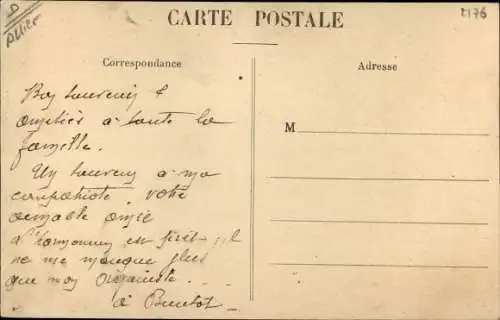 Allier
CARTE POSTALE
2176
Correspondance
Adresse
M
Bon souvenir &
amitiés à toute la
famille.
Un souvenir à ma
compatriote, votre
aimable amie
est il
ne me manque plus
que mon Organiste. . .
à